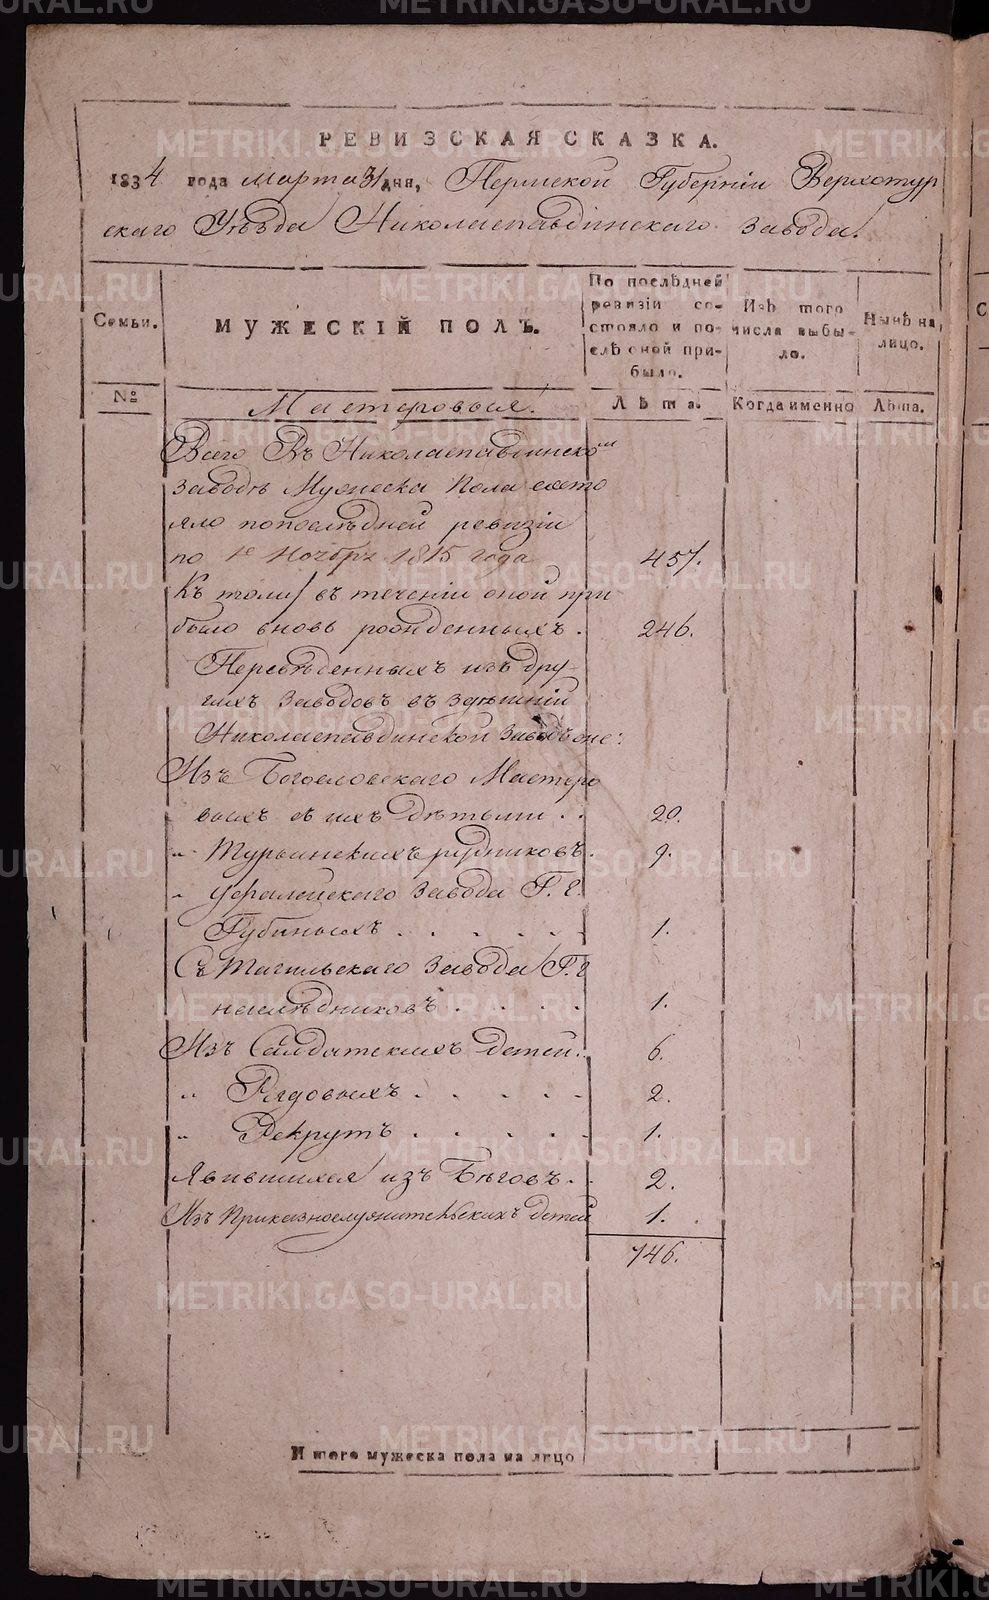 РЕВИЗСКАЯ СКАЗКА.
1834 года Марта 31 дня, Пермской Губерніи Верхотур
скаго Уѣзда Николаепавдинскаго завода.
Семьи.
МУЖЕСКІЙ ПОЛЪ.
По послѣдней
ревизіи со-
стояло и по-
слѣ оной при-
было.
Изъ того
числа выбы-
ло.
Нынѣ на
лицо.
№
Мастеровыя.
Лѣта.
Когда именно
Лѣта.
Всего Въ Николаепавдинском
заводѣ Мужеска Пола состо
яло попослѣдней ревизіи
по 1е Ноября 1815 года 457.
Къ тому въ теченіи оной при
было вновь рожденныхъ. 246.
Переведенныхъ изъ дру-
гихъ заводовъ въ здѣшній
Николаепавдинской заводъ
Изъ Богословскаго Мастеро
выхъ съ ихъ дѣтьми . . 20.
„ Турьинскихъ рудниковъ. 9.
„ Уфалейскаго завода Г. Г.
Губиныхъ . . . . . . 1.
Съ Тагильскаго завода Г. Г
наслѣдниковъ . . . . 1.
Изъ Салдатскихъ детей. 6.
„ Рядовыхъ . . . . . 2.
„ Рекрутъ . . . . . 1.
Явившихся изъ Бѣговъ. . 2.
Изъ Приказнослужительскихъ детей 1.
746.
Итого мужеска пола на лицо